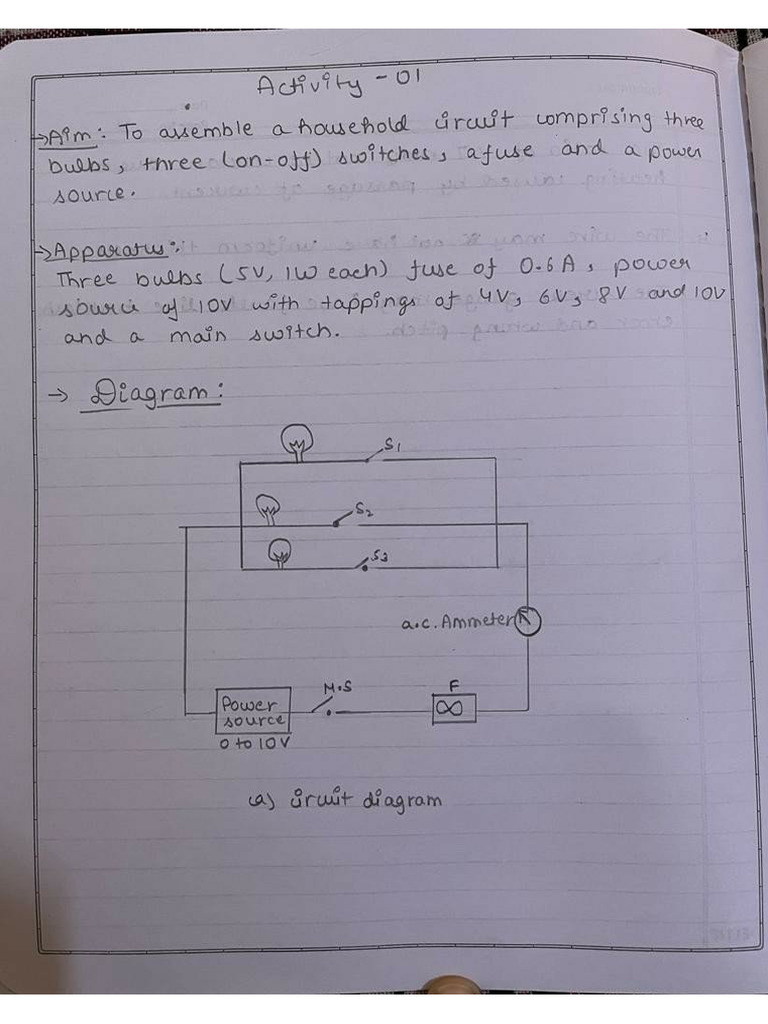 Activity - 01
→ Aim: To assemble a household circuit comprising three
bulbs, three (on-off) switches, a fuse and a power
source.
→ Apparatus:
Three bulbs (5V, 1W each) fuse of 0.6A, power
source of 10V with tappings of 4V, 6V, 8V and 10V
and a main switch.
→ Diagram:
S1
S2
S3
a.c. Ammeter
M.S
F
Power
source
0 to 10V
(a) circuit diagram